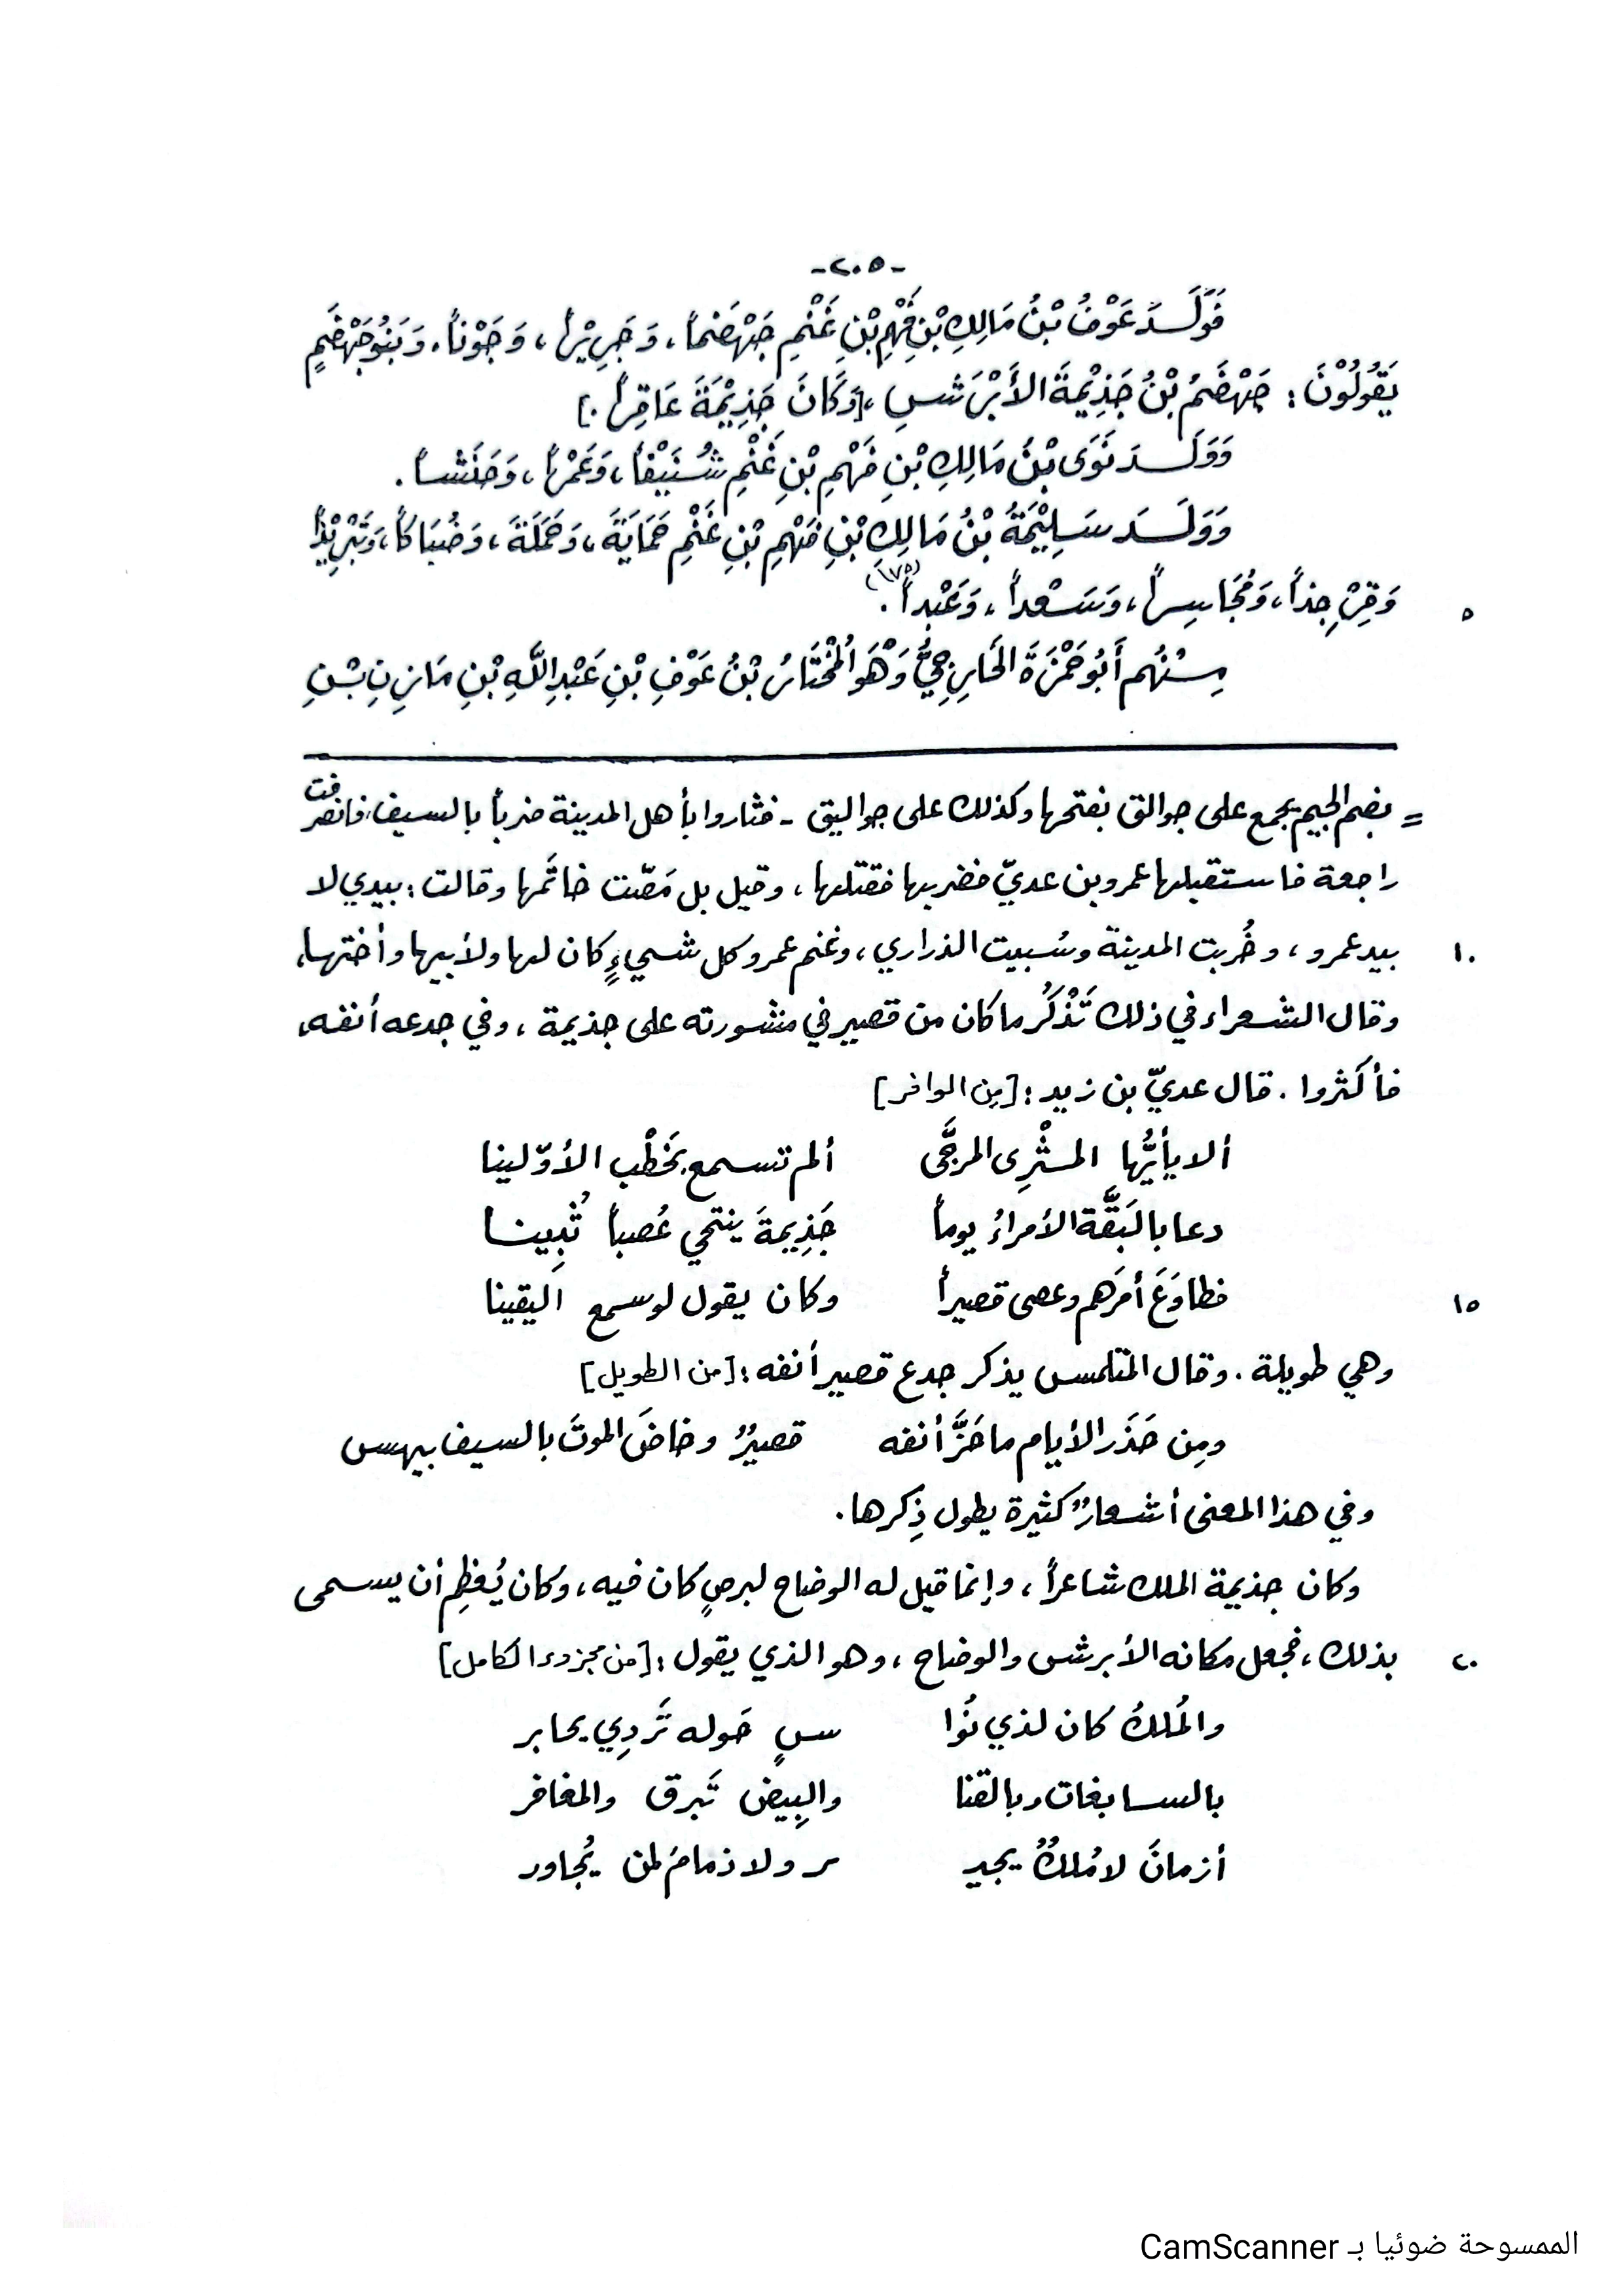 -٢٠٥-
فَوَلَدَ عَوْفُ بْنُ مَالِكِ بْنِ فَهْمِ بْنِ غَنْمٍ جَهْضَماً، وَجَرِيْراً، وَجَوْناً. وَبَنُو جَهْضَمٍ
يَقُولُوْنَ: جَهْضَمُ بْنُ جَذِيْمَةَ الأَبْرَشِ، [وَكَانَ جَذِيْمَةَ عَاقِراً.]
وَوَلَدَ نَوَى بْنُ مَالِكِ بْنِ فَهْمِ بْنِ غَنْمٍ شُنَيْفاً، وَعَمْراً، وَحَنَشاً.
وَوَلَدَ سَلِيْمَةُ بْنُ مَالِكِ بْنِ فَهْمِ بْنِ غَنْمٍ حَمَايَةَ، وَحَمَلَةَ، وَضُبَاكاً، وَتَبْرِيْذاً
٥ وَقِرْجِذاً، وَمُجَاسِراً، وَسَعْداً، وَعَبْداً.(١٧٥)
مِنْهُم أَبُو حَمْزَةَ الخَارِجِيُّ وَهْوَ المُخْتَارُ بْنُ عَوْفِ بْنِ عَبْدِ اللَّهِ بْنِ مَازِنِ بْنِ
= بضم الجيم يجمع على جوالق بفتحها وكذلك على جواليق - فثاروا بأهل المدينة ضرباً بالسيف، فانصرفت
راجعة فاستقبلها عمرو بن عديّ فضربها فقتلها، وقيل بل مَصّت خاتَمها وقالت: بيدي لا
١٠ بيد عمرو، وخُربت المدينة وسُبيت الذراري، وغنم عمرو كل شيءٍ كان لها ولأبيها وأختها،
وقال الشعراء في ذلك تَذْكُر ما كان من قصير في مشورته على جذيمة، وفي جدعه أنفه،
فأكثروا. قال عديّ بن زيد: [مِن الوافر]
ألا يأيُّها المثْرِى المرجَّى ألم تسمع بخَطْب الأوّلينا
دعا بالبَقَّة الأمراءُ يوماً جَذِيمةَ ينتحي عُصباً ثُبِينا
١٥ فطاوَعَ أمرَهم وعصى قصيراً وكان يقول لو سمع اليقينا
وهي طويلة. وقال المتلمس يذكر جدع قصير أنفه: [من الطويل]
ومِن حَذَر الأيام ما حَزَّ أنفه قصيرٌ وخاضَ الموتَ بالسيف بيهس
وفي هذا المعنى أشعارٌ كثيرة يطول ذِكرها.
وكان جذيمة الملك شاعراً، وإنما قيل له الوضاح لبرصٍ كان فيه، وكان يُعْظِم أن يسمى
٢٠ بذلك، فجعل مكانه الأبرش والوضاح، وهو الذي يقول: [من مجزوء الكامل]
والمُلكُ كان لذي نُوا سٍ حَوله تَردِي يحابر
بالسابغات وبالقنا والبِيض تَبرق والمغافر
أزمانَ لا مُلكٌ يجيـ ـر ولا ذمامَ لمن يُجاور
الممسوحة ضوئيا بـ CamScanner